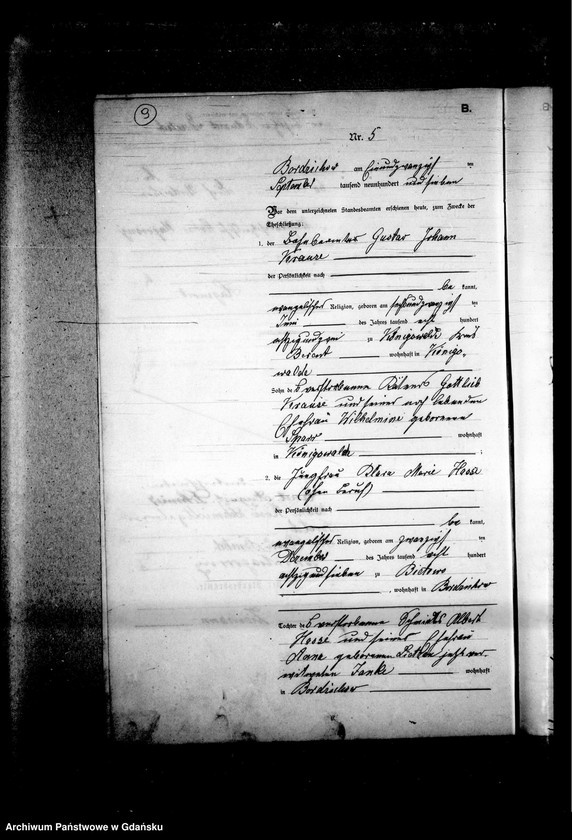 9
B.
Nr. 5
Bordzichow am einundzwanzigsten
September tausend neunhundert und sieben
Vor dem unterzeichneten Standesbeamten erschienen heute, zum Zwecke der
Eheschließung:
1. der Gustav Johann
Krause
der Persönlichkeit nach
be kannt,
evangelischer Religion, geboren am ten
Juni des Jahres tausend acht hundert
achtzig und drei zu Königswalde Kreis
Berent wohnhaft in Königs-
walde
Sohn des verstorbenen Gottlieb
Krause und seiner noch lebenden
Ehefrau Wilhelmine geborenen
wohnhaft
in Königswalde ;
2. die Jungfrau Klara Marie Hesse
(ohne Beruf)
der Persönlichkeit nach
be kannt,
evangelischer Religion, geboren am zwanzigsten
Dezember des Jahres tausend acht hundert
achtzig und sieben zu
, wohnhaft in Bordzichow
Tochter des verstorbenen Albert
Hesse und seiner Ehefrau
geborenen jetzt ver-
wohnhaft
in Bordzichow
Archiwum Państwowe w Gdańsku